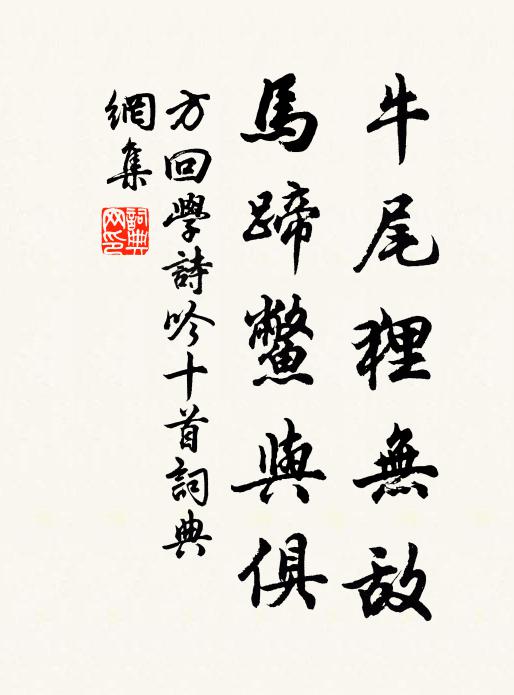 牛尾狸無敵
馬蹄鱉與俱
方回學詩吟十首詞典
網集
詞典網印